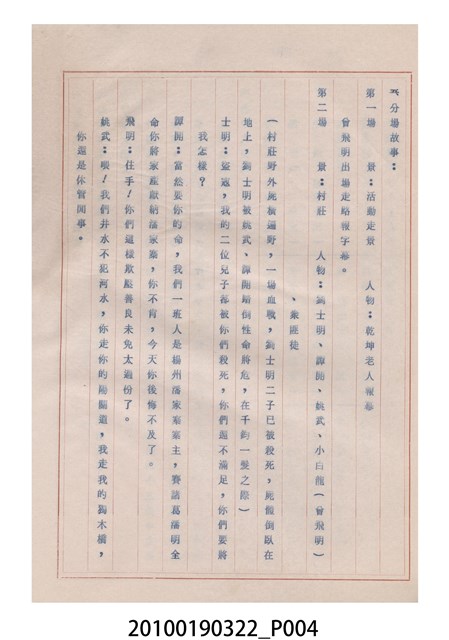 分場故事：
第一場　景：活動走景　人物：乾坤老人報幕
曾飛明出場走路報字幕。
第二場　景：村莊　人物：鍾士明、譚開、姚武、小白龍（曾飛明）
、衆匪徒
（村莊野外屍橫遍野，一場血戰，鍾士明二子已被殺死，屍體倒臥在
地上，鍾士明被姚武、譚開踢倒性命將危，在千鈞一髮之際）
士明：盜寇，我的二位兒子都被你們殺死，你們還不滿足，你們要將
我怎樣？
譚開：當然要你的命，我們一班人是楊州潘家寨寨主，賽諸葛潘明全
命你將家產獻納潘家寨，你不肯，今天你後悔不及了。
飛明：住手！你們這樣欺壓善良未免太過份了。
姚武：喂！我們井水不犯河水，你走你的陽關道，我走我的獨木橋，
你還是休管閒事。
20100190322_P004